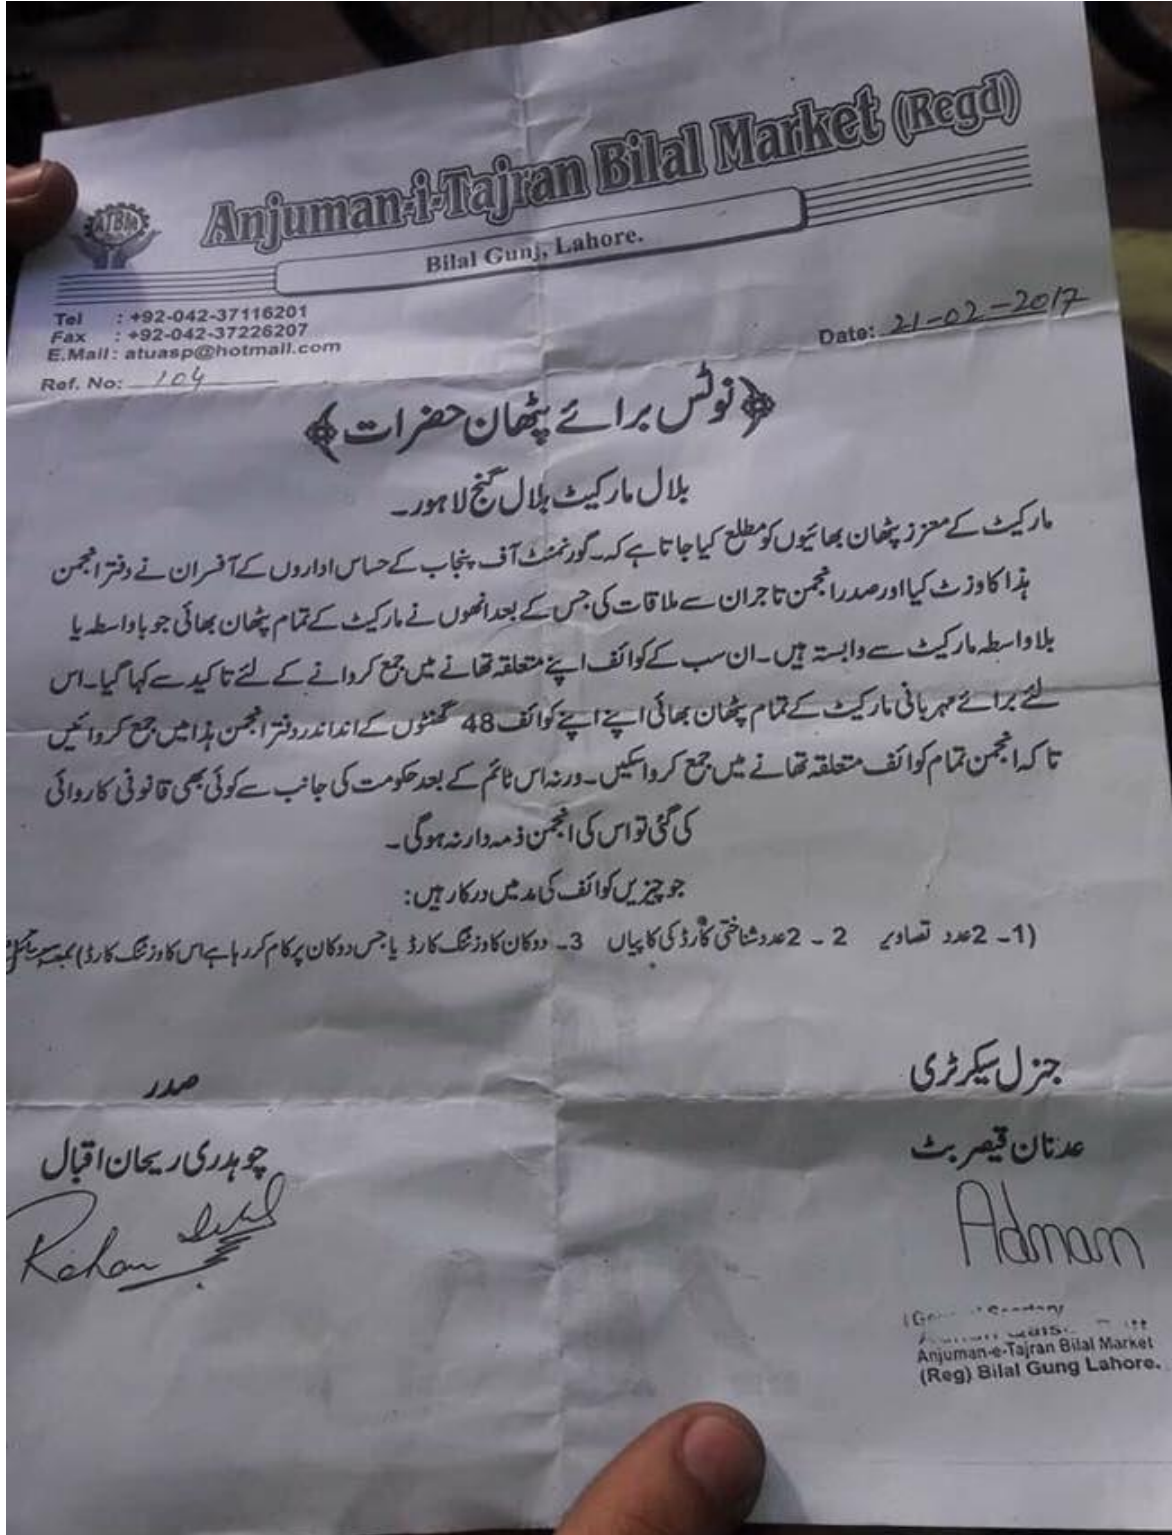 Anjuman-i-Tajran Bilal Market (Regd)
ATBM
Bilal Gunj, Lahore.
Tel : +92-042-37116201
Fax : +92-042-37226207
E.Mail : atuasp@hotmail.com
Date: 21-02-2017
Ref. No: 104
﴿نوٹس برائے پٹھان حضرات﴾
بلال مارکیٹ بلال گنج لاہور۔
مارکیٹ کے معزز پٹھان بھائیوں کو مطلع کیا جاتا ہے کہ۔ گورنمنٹ آف پنجاب کے حساس اداروں کے آفسران نے دفتر انجمن
ہذا کا وزٹ کیا اور صدر انجمن تاجران سے ملاقات کی جس کے بعد انھوں نے مارکیٹ کے تمام پٹھان بھائی جو باواسطہ یا
بلاواسطہ مارکیٹ سے وابستہ ہیں۔ ان سب کے کوائف اپنے متعلقہ تھانے میں جمع کروانے کے لئے تاکید سے کہا گیا۔ اس
لئے برائے مہربانی مارکیٹ کے تمام پٹھان بھائی اپنے اپنے کوائف 48 گھنٹوں کے انداندر دفتر انجمن ہذا میں جمع کروائیں
تاکہ انجمن تمام کوائف متعلقہ تھانے میں جمع کرواسکیں۔ ورنہ اس ٹائم کے بعد حکومت کی جانب سے کوئی بھی قانونی کاروائی
کی گئی تو اس کی انجمن ذمہ دار نہ ہوگی۔
جو چیزیں کوائف کی مد میں درکار ہیں:
(1۔ 2عدد تصاویر 2 ۔ 2عدد شناختی کارڈ کی کاپیاں 3۔ دوکان کا وزٹنگ کارڈ یا جس دوکان پر کام کر رہا ہے اس کا وزٹنگ کارڈ) بمعہ
جنرل سیکرٹری
صدر
عدنان قیصر بٹ
چوہدری ریحان اقبال
Adnan
Rehan Iqbal
Anjuman-e-Tajran Bilal Market
(Reg) Bilal Gung Lahore.